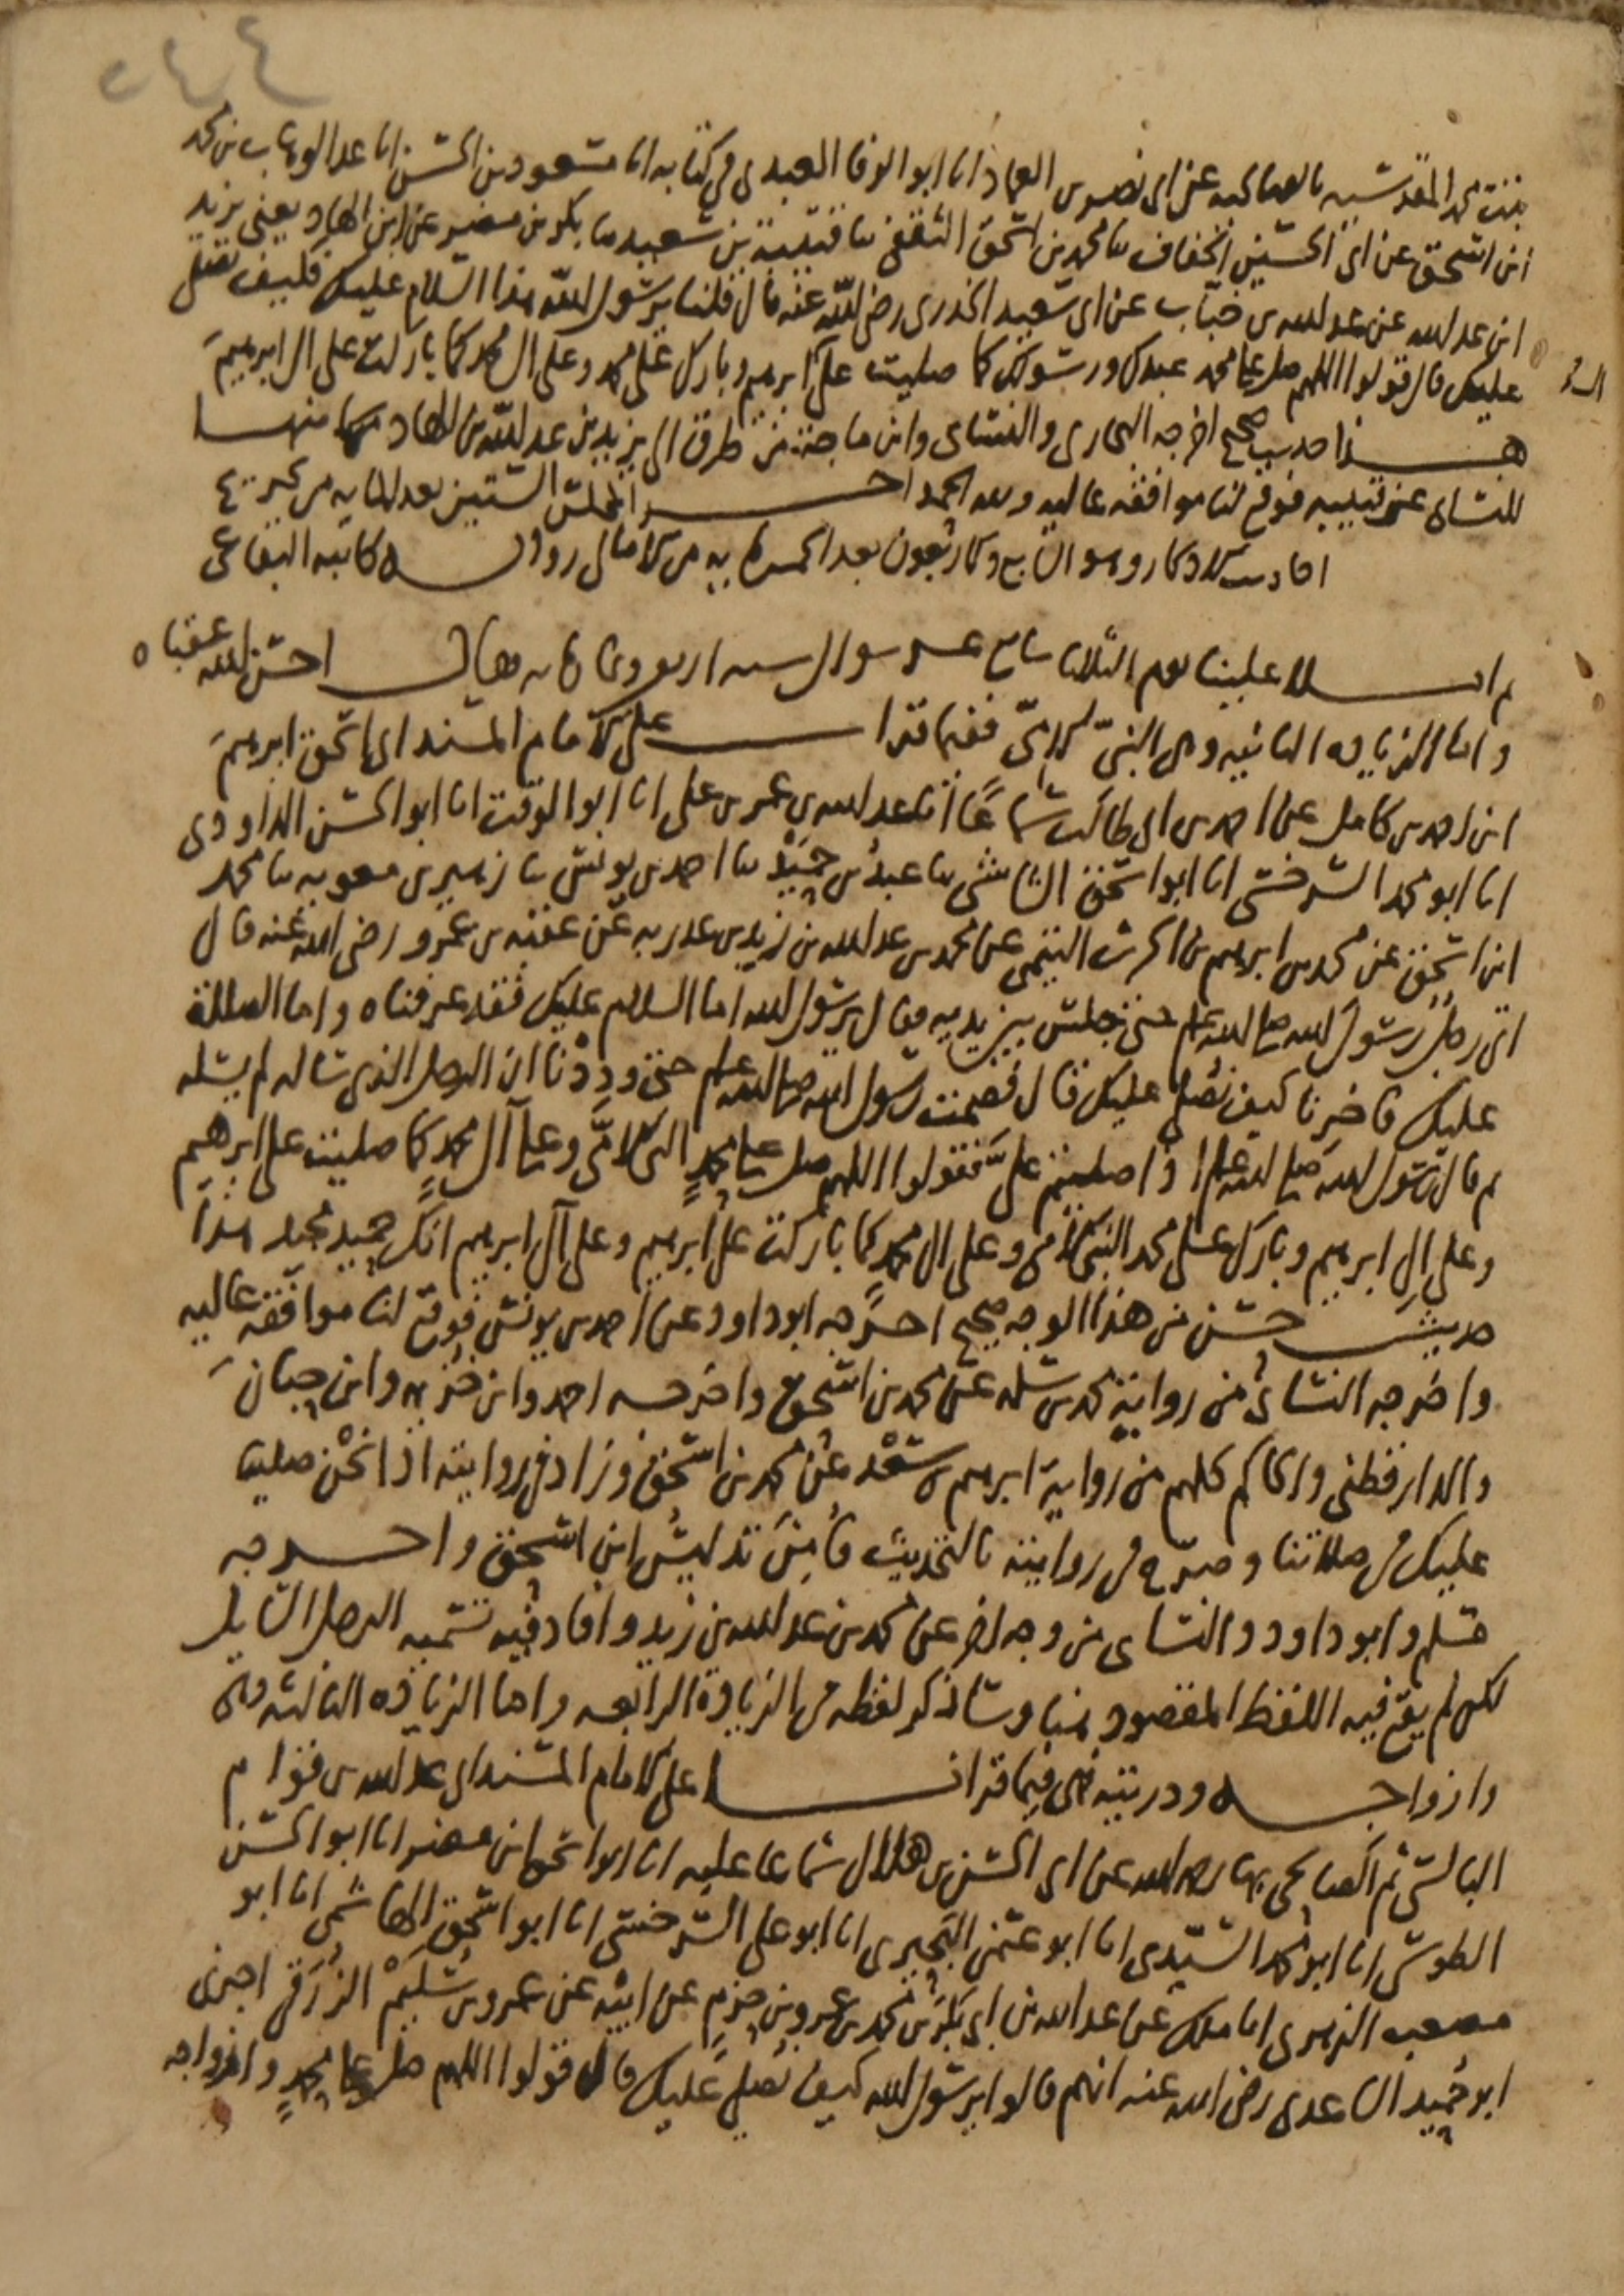 ٢٤٤
بنت محمد المقدسيه بالصالحيه عن ابي نصر بن العماد انا ابو الوفا العبدي في كتابه انا مسعود بن الحسن انا عبد الوهاب بن محمد
ابن اسحق عن ابي الحسين الخفاف نا محمد بن اسحق الثقفي نا قتيبة بن سعيد نا بكر بن مضر عن ابن الهاد يعني يزيد
ابن عبد الله عن عبد الله بن خباب عن ابي سعيد الخدري رضي الله عنه قال قلنا يرسول الله هذا السلام عليك فكيف نصلي
عليك قال قولوا اللهم صل على محمد عبدك ورسولك كما صليت على ابرهيم وبارك على محمد وعلى ال محمد كما باركت على ال ابرهيم
هذا حديث صحيح اخرجه البخاري والنسائ وابن ماجة من طرق الى يزيد بن عبد الله بن الهاد منها
للنسائ عن قتيبه فوقع لنا موافقه عاليه ولله الحمد اخر المجلس الستين بعد المايه من تخريج
احاديث الاذكار وهو السابع والاربعون بعد الخمسمايه من الامالي رواية كاتبه البقاعي
ثم املا علينا يوم الثلاثا سابع عشر شوال سنه اربع وثمانمايه فقال احسن الله عقباه
واما الزياده الثانيه وهي النبي الامي ففيما قرات على الامام المسند ابي اسحق ابرهيم
ابن احمد بن كامل عن احمد بن ابي طالب سماعًا انا عبد الله بن عمر بن علي انا ابو الوقت انا ابو الحسن الداودي
انا ابو محمد السرخسي انا ابو اسحق الشاشي نا عبد بن حميد نا احمد بن يونس نا زهير بن معويه نا محمد
ابن اسحق عن محمد بن ابرهيم بن الحرث التيمي عن محمد بن عبد الله بن زيد بن عبد ربه عن عقبه بن عمرو رضي الله عنه قال
اتى رجل رسول الله صلى الله عليه وسلم حتى جلس بين يديه فقال يرسول الله اما السلام عليك فقد عرفناه واما الصلاة
عليك فاخبرنا كيف نصلي عليك قال فصمت رسول الله صلى الله عليه وسلم حتى وددنا ان الرجل الذي ساله لم يسله
ثم قال رسول الله صلى الله عليه وسلم اذا صليتم علي فقولوا اللهم صل على محمدٍ النبي الامي وعلى آل محمدٍ كما صليت على ابرهيم
وعلى ال ابرهيم وبارك على محمد النبي الامي وعلى ال محمد كما باركت على ابرهيم وعلى آل ابرهيم انك حميد مجيد هذا
حديث حسن من هذا الوجه صحيح اخرجه ابو داود عن احمد بن يونس فوقع لنا موافقه عاليه
واخرجه النسائ من رواية محمد بن سلمه عن محمد بن اسحق واخرجه احمد وابن خزيمه وابن حبان
والدارقطني والحاكم كلهم من رواية ابرهيم بن سعد عن محمد بن اسحق وزاد في روايته اذا نحن صلينا
عليك في صلاتنا وصرح في روايته بالتحديث فأمن تدليس ابن اسحق واخرجه
مسلم وابو داود والنسائ من وجه اخر عن محمد بن عبد الله بن زيد وافاد فيه تسميه الرجل السايل
لكن لم يقع فيه اللفظ المقصود هنا وساذكر لفظه في الزيادة الرابعه واما الزياده الثالثه وهي
وازواجه وذريته فهي فيما قرانا على الامام المسند ابي عبد الله بن قوام
البالسي ثم الصالحي بها رحمه الله عن ابي الحسن بن هلال سماعا عليه انا ابو اسحق ابن مضر انا ابو الحسن
الطوسي انا ابو محمد السيدي انا ابو عثمن البحيري انا ابو علي السرخسي انا ابو اسحق الهاشمي انا ابو
مصعب الزهري انا ملك عن عبد الله بن ابي بكر بن محمد بن عمرو بن حزم عن ابيه عن عمرو بن سليم الزرقي اخبرني
ابو حميد الساعدي رضي الله عنه انهم قالوا يرسول الله كيف نصلي عليك قال قولوا اللهم صل على محمدٍ وازواجه